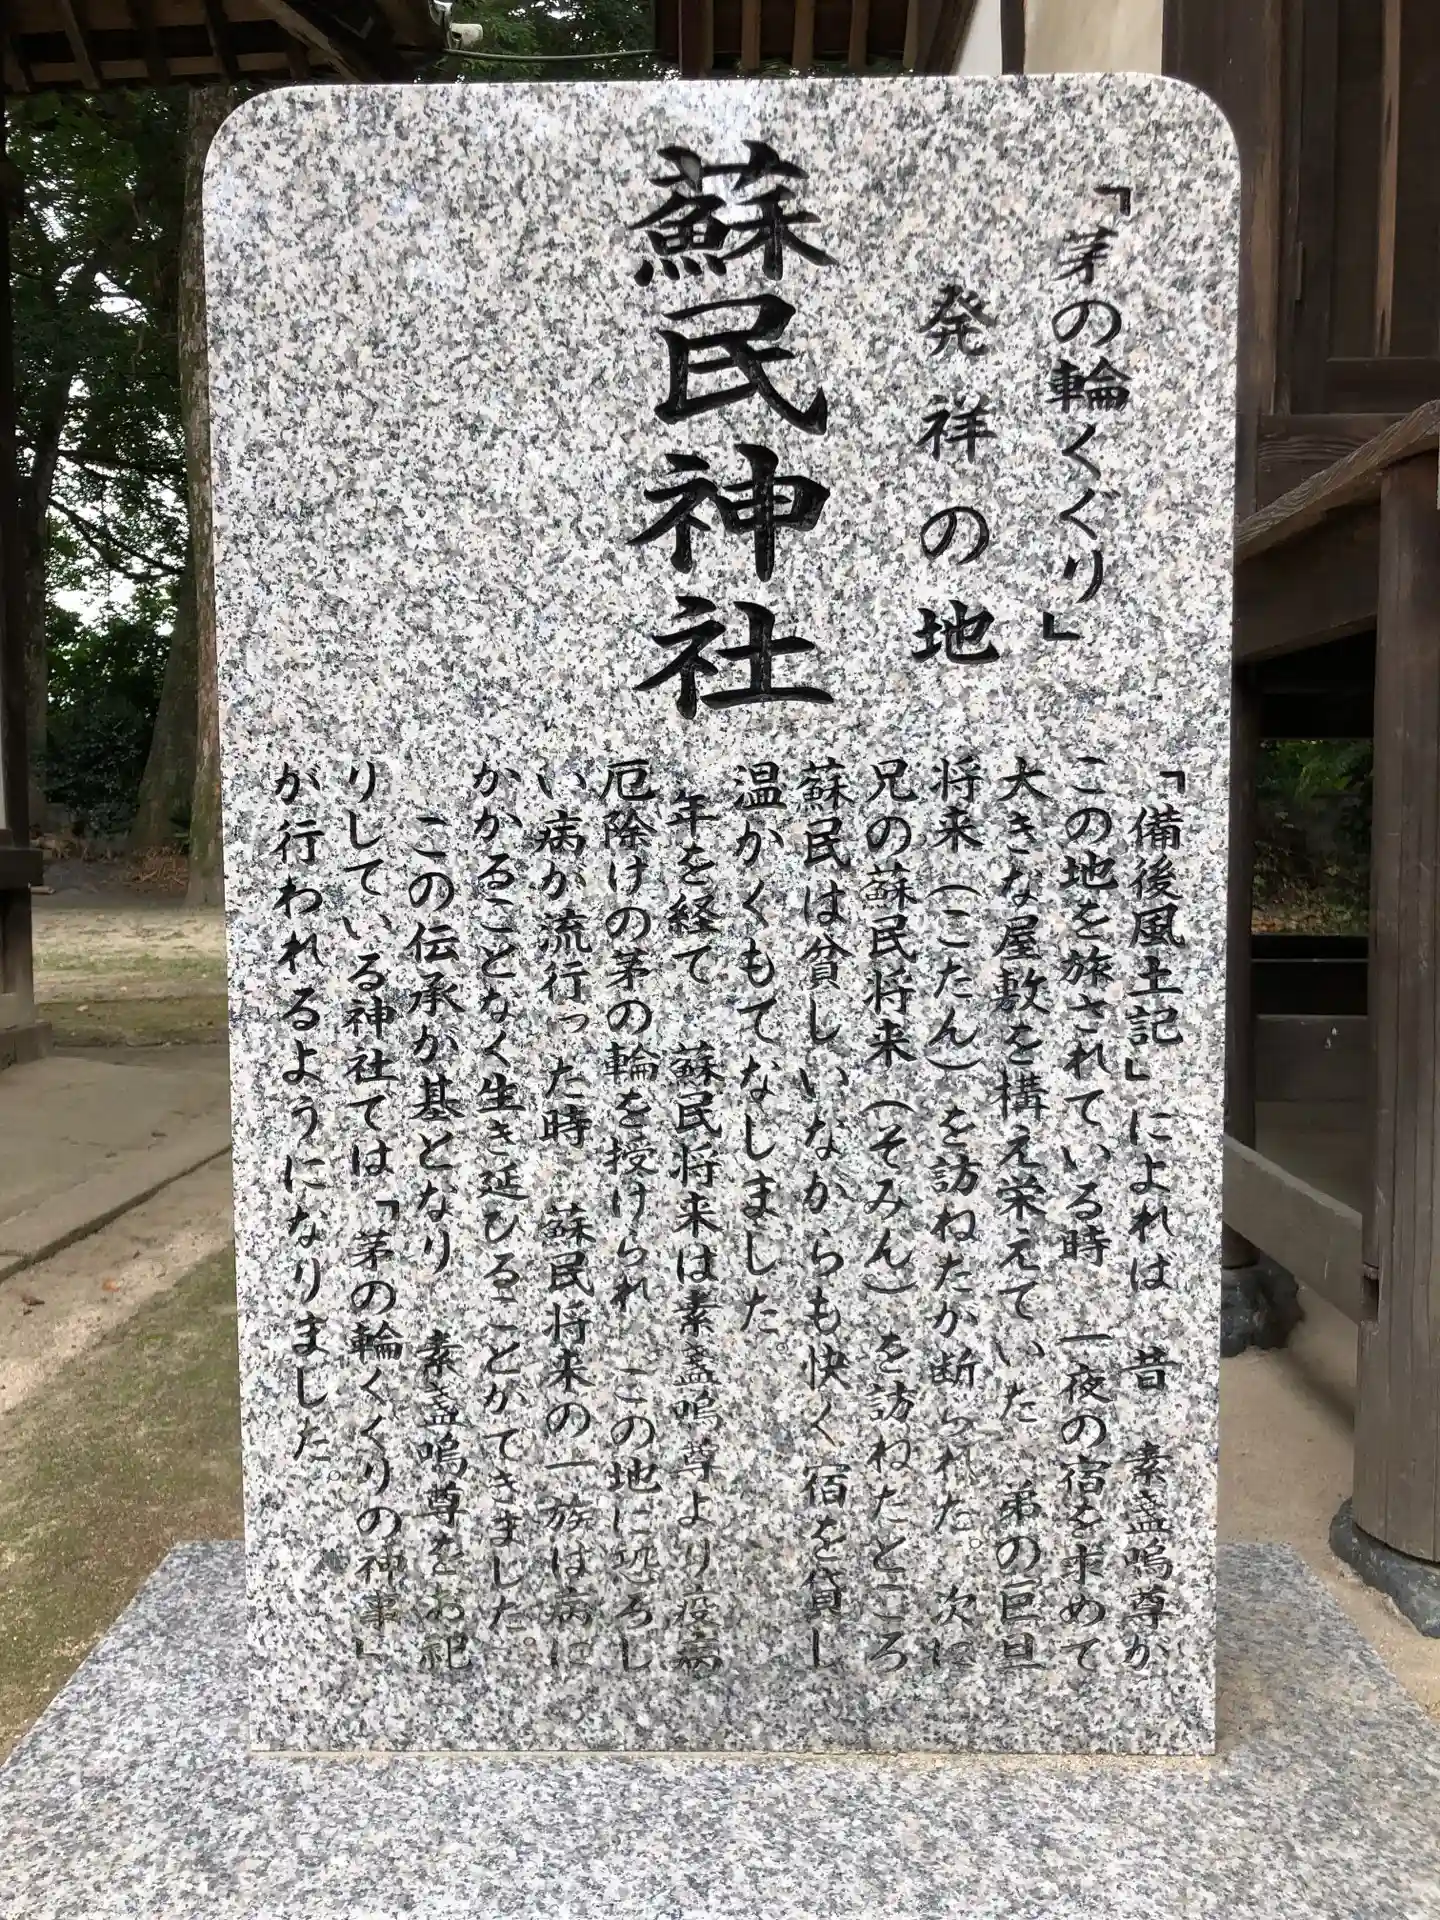 「茅の輪くぐり」
発祥の地
蘇民神社
「備後風土記」によれば 昔 素盞嗚尊が
この地を旅されている時 一夜の宿を求めて
大きな屋敷を構え栄えていた 弟の巨旦
将来(こたん)を訪ねたが断られた。次に
兄の蘇民将来(そみん)を訪ねたところ
蘇民は貧しいながらも快く宿を貸し
温かくもてなしました。
年を経て 蘇民将来は素盞嗚尊より疫病
厄除けの茅の輪を授けられ この地に恐ろし
い病が流行った時 蘇民将来の一族は病に
かかることなく生き延びることができました。
この伝承が基となり 素盞嗚尊をお祀
りしている神社では「茅の輪くぐりの神事」
が行われるようになりました。